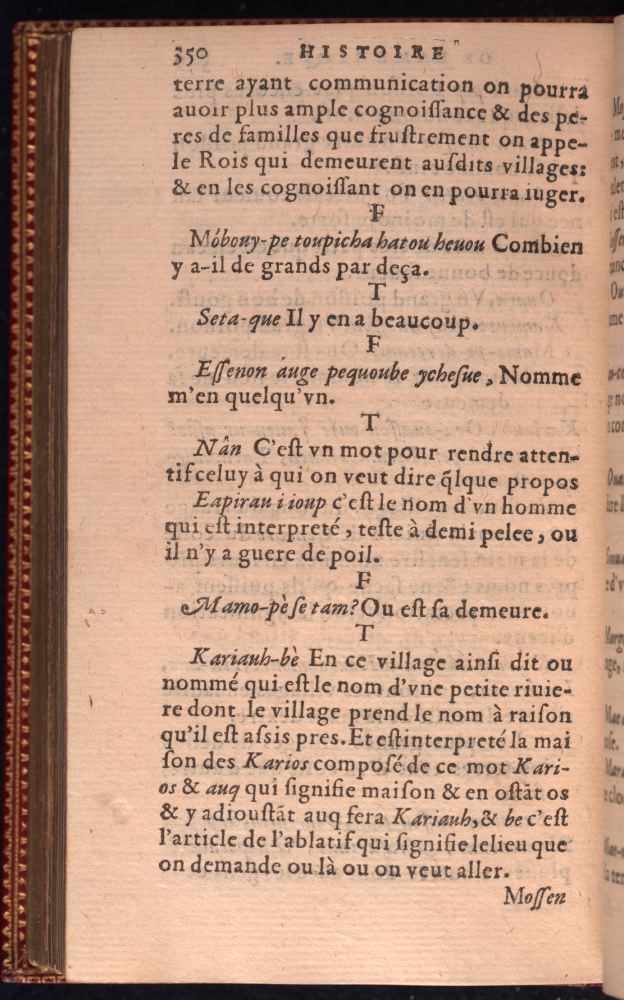 350 HISTOIRE
terre ayant communication on pourra
auoir plus ample cognoiſſance & des pe-
res de familles que fruſtrement on appe-
le Rois qui demeurent auſdits villages:
& en les cognoiſſant on en pourra iuger.
F
Móbouy-pe toupicha hatou heuou Combien
y a-il de grands par deça.
T
Seta-que Il y en a beaucoup.
F
Eſſenon áuge pequoube ycheſue, Nomme
m'en quelqu'vn.
T
Nân C'eſt vn mot pour rendre atten-
tif celuy à qui on veut dire q̃lque propos
Eapirau i ioup c'eſt le nom d'vn homme
qui eſt interpreté, teſte à demi pelee, ou
il n'y a guere de poil.
F
Mamo-pè ſe tam? Ou eſt ſa demeure.
T
Kariauh-bè En ce village ainſi dit ou
nommé qui eſt le nom d'vne petite riuie-
re dont le village prend le nom à raiſon
qu'il eſt aſsis pres. Et eſt interpreté la mai
ſon des Karios compoſé de ce mot Kari-
os & auq qui ſignifie maiſon & en oſtãt os
& y adiouſtãt auq fera Kariauh, & be c'eſt
l'article de l'ablatif qui ſignifie le lieu que
on demande ou là ou on veut aller.
Moſſen